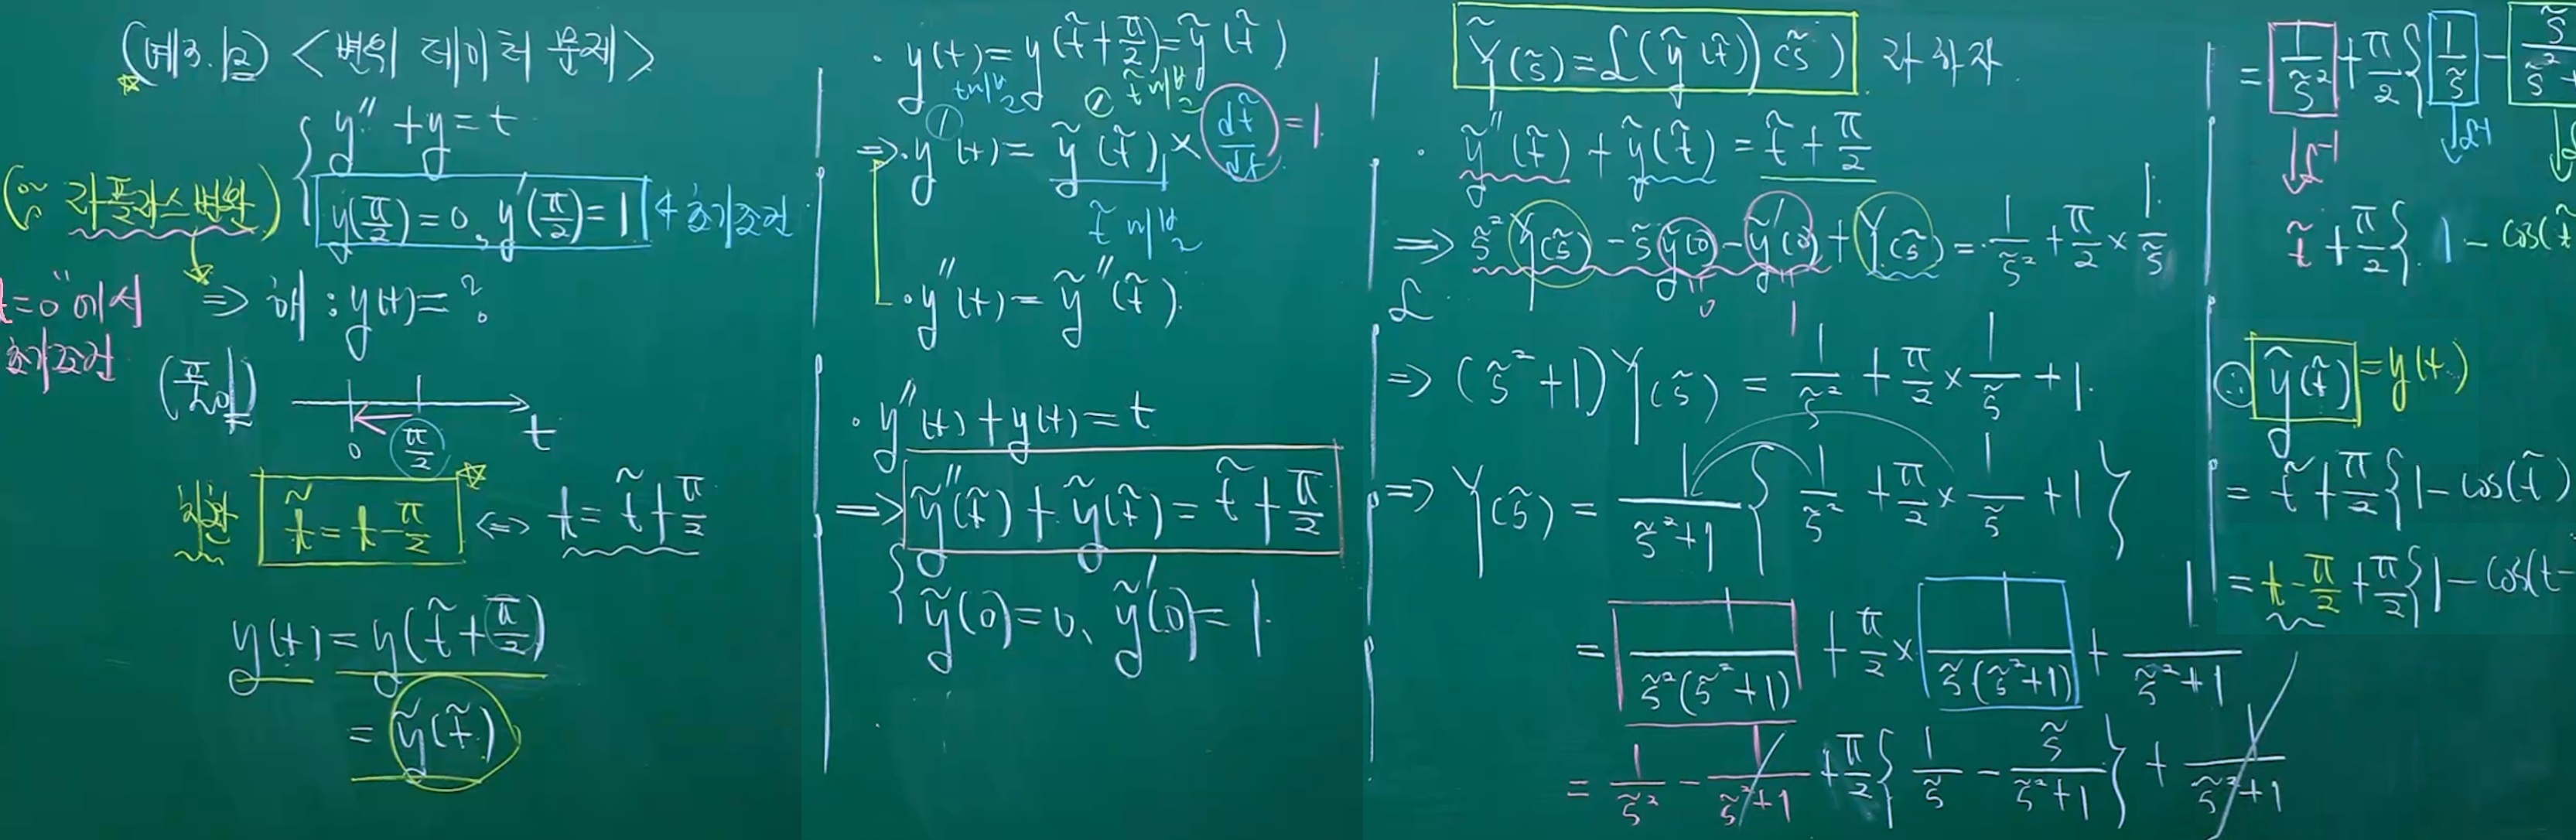 (예3.12) <변위 데이터 문제>
y'' + y = t
y(π/2) = 0, y'(π/2) = 1 ← 초기조건
(∵ 라플라스변환)
t=0"에서
초기조건
⇒ 해 : y(t) = ?
(풀이)
0 π/2 t
치환 t̃ = t - π/2 ⇔ t = t̃ + π/2
y(t) = y(t̃ + π/2)
= ỹ(t̃)
· y(t) = y(t̃ + π/2) = ỹ(t̃)
t에 대한 미분 ① t̃ 미분
⇒ · y'(t) = ỹ'(t̃) × dt̃/dt = 1
t̃ 미분
· y''(t) = ỹ''(t̃).
· y''(t) + y(t) = t
⇒ ỹ''(t̃) + ỹ(t̃) = t̃ + π/2
ỹ(0) = 0, ỹ'(0) = 1.
Ỹ(s̃) = ℒ(ỹ(t̃))(s̃) 라 하자
· ỹ''(t̃) + ỹ(t̃) = t̃ + π/2
⇒ s̃²Y(s̃) - s̃ỹ(0) - ỹ'(0) + Y(s̃) = 1/s̃² + π/2 × 1/s̃
ℒ 0 1
⇒ (s̃² + 1)Y(s̃) = 1/s̃² + π/2 × 1/s̃ + 1.
⇒ Y(s̃) = 1/(s̃²+1) { 1/s̃² + π/2 × 1/s̃ + 1 }
= 1/(s̃²(s̃²+1)) + π/2 × 1/(s̃(s̃²+1)) + 1/(s̃²+1)
= 1/s̃² - 1/(s̃²+1) + π/2 { 1/s̃ - s̃/(s̃²+1) } + 1/(s̃²+1)
= 1/s̃² + π/2 { 1/s̃ - s̃/(s̃²+
↓ℒ⁻¹ ↓ℒ⁻¹
t̃ + π/2 { 1 - cos(t̃
∴ ỹ(t̃) = y(t)
= t̃ + π/2 { 1 - cos(t̃)
= t - π/2 + π/2 { 1 - cos(t-